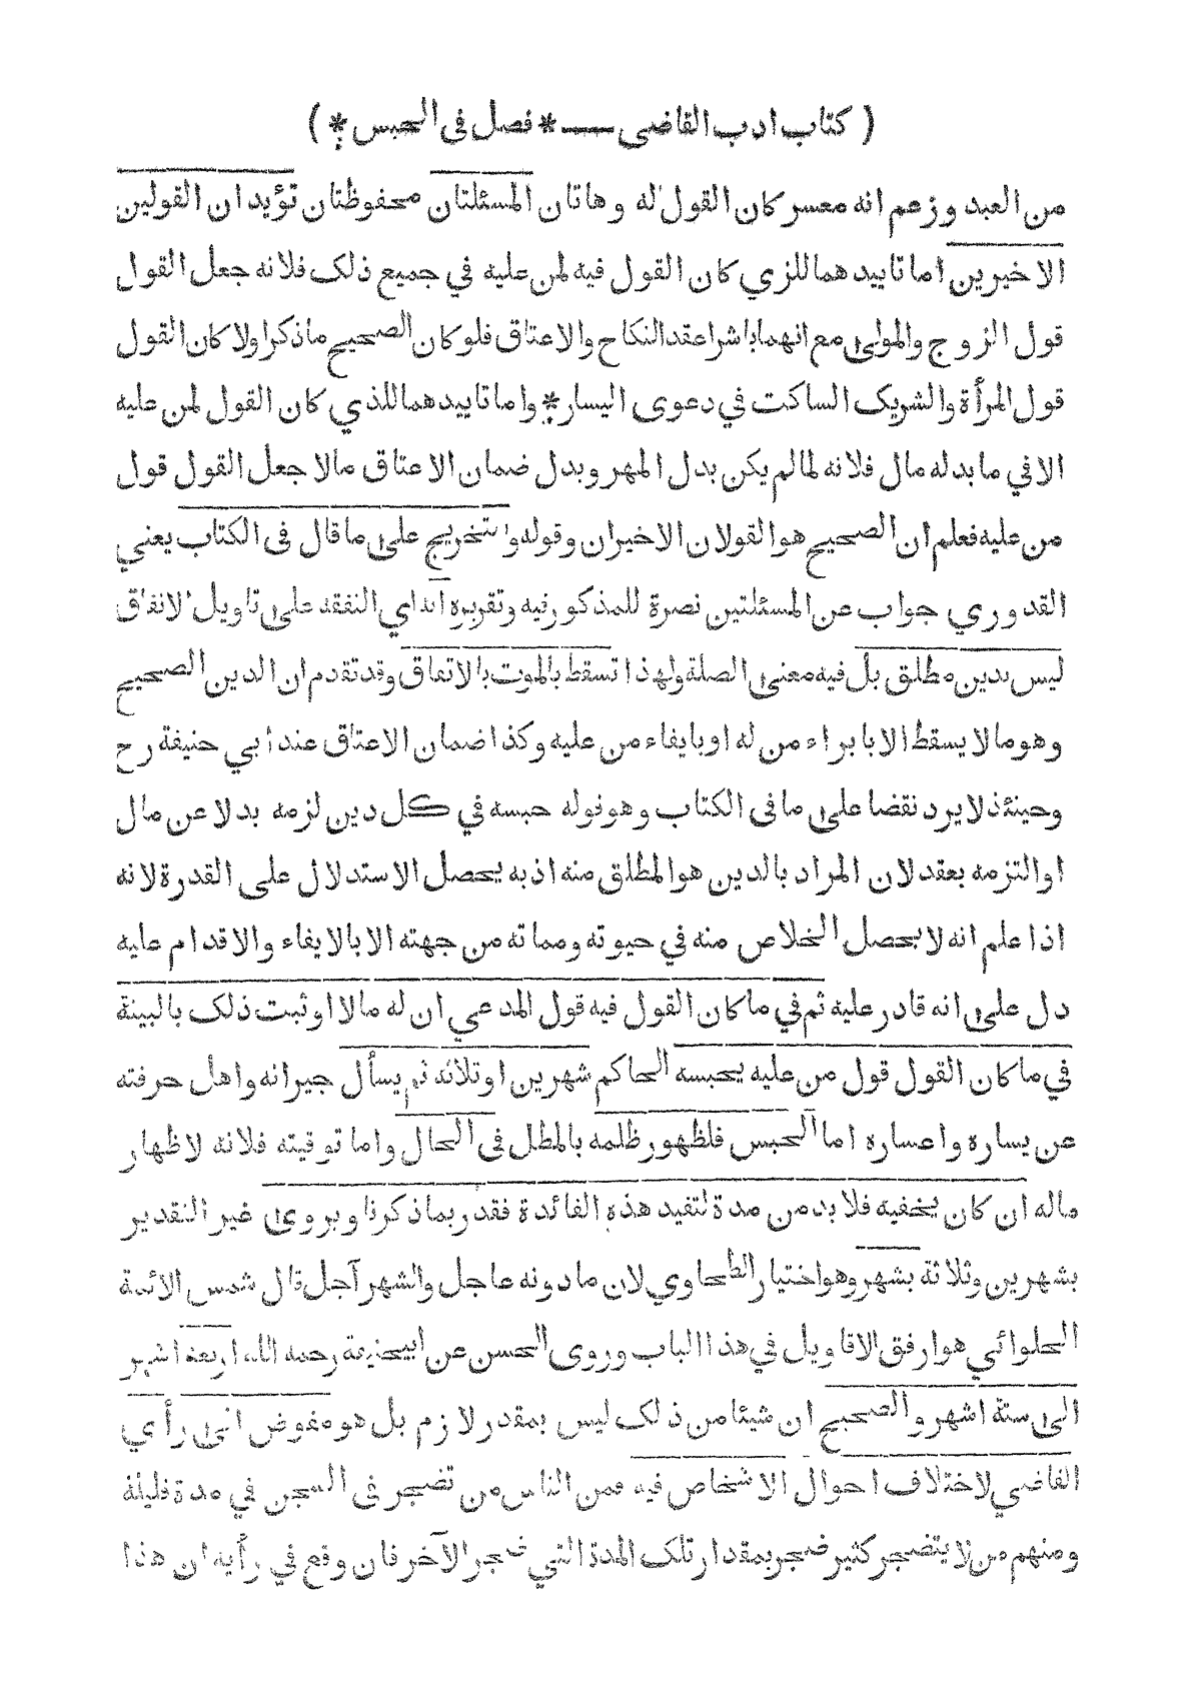 ( كتاب ادب القاضى —— * فصل فى الحبس * )
من العبد وزعم انه معسر كان القول له وهاتان المسئلتان محفوظتان تؤيد ان القولين
الاخيرين اما تاييدهما للزي كان القول فيه لمن عليه في جميع ذلك فلانه جعل القول
قول الزوج والمولى مع انهما باشرا عقد النكاح والاعتاق فلو كان الصحيح ماذكرا ولا كان القول
قول المرأة والشريك الساكت في دعوى اليسار * واما تاييدهما للذي كان القول لمن عليه
الا في ما بدله مال فلانه لما لم يكن بدل المهر وبدل ضمان الاعتاق مالا جعل القول قول
من عليه فعلم ان الصحيح هو القولان الاخيران وقوله والتخريج على ما قال فى الكتاب يعني
القدوري جواب عن المسئلتين نصرة للمذكور فيه وتقريره انه اي النفقة على تاويل الانفاق
ليس بدين مطلق بل فيه معنى الصلة ولهذا تسقط بالموت بالاتفاق وقد تقدم ان الدين الصحيح
وهو ما لا يسقط الا بابراء من له او بايفاء من عليه وكذا ضمان الاعتاق عند أبي حنيفة رح
وحينئذ لا يرد نقضا على ما فى الكتاب وهو قوله حبسه في كل دين لزمه بدلا عن مال
او التزمه بعقد لان المراد بالدين هو المطلق منه اذ به يحصل الاستدلال على القدرة لانه
اذا علم انه لا يحصل الخلاص منه في حيوته ومماته من جهته الا بالايفاء والاقدام عليه
دل على انه قادر عليه ثم في ما كان القول فيه قول المدعي ان له مالا او ثبت ذلك بالبينة
في ما كان القول قول من عليه يحبسه الحاكم شهرين او ثلاثة ثم يسأل جيرانه واهل حرفته
عن يساره واعساره اما الحبس فلظهور ظلمه بالمطل فى الحال واما توقيته فلانه لاظهار
ماله ان كان يخفيه فلا بد من مدة لتفيد هذه الفائدة فقدر بما ذكرنا ويروى غير التقدير
بشهرين وثلاثة بشهر وهو اختيار الطحاوي لان ما دونه عاجل والشهر آجل قال شمس الائمة
الحلوائي هو ارفق الاقاويل في هذا الباب وروى الحسن عن ابيحنيفة رحمه الله اربعة اشهر
الى ستة اشهر والصحيح ان شيئا من ذلك ليس بمقدر لازم بل هو مفوض الى رأي
القاضي لاختلاف احوال الاشخاص فيه فمن الناس من تضجر فى السجن في مدة قليلة
ومنهم من لا يتضجر كثير ضجر بمقدار تلك المدة التي ضجر الآخر فان وقع في رأيه ان هذا